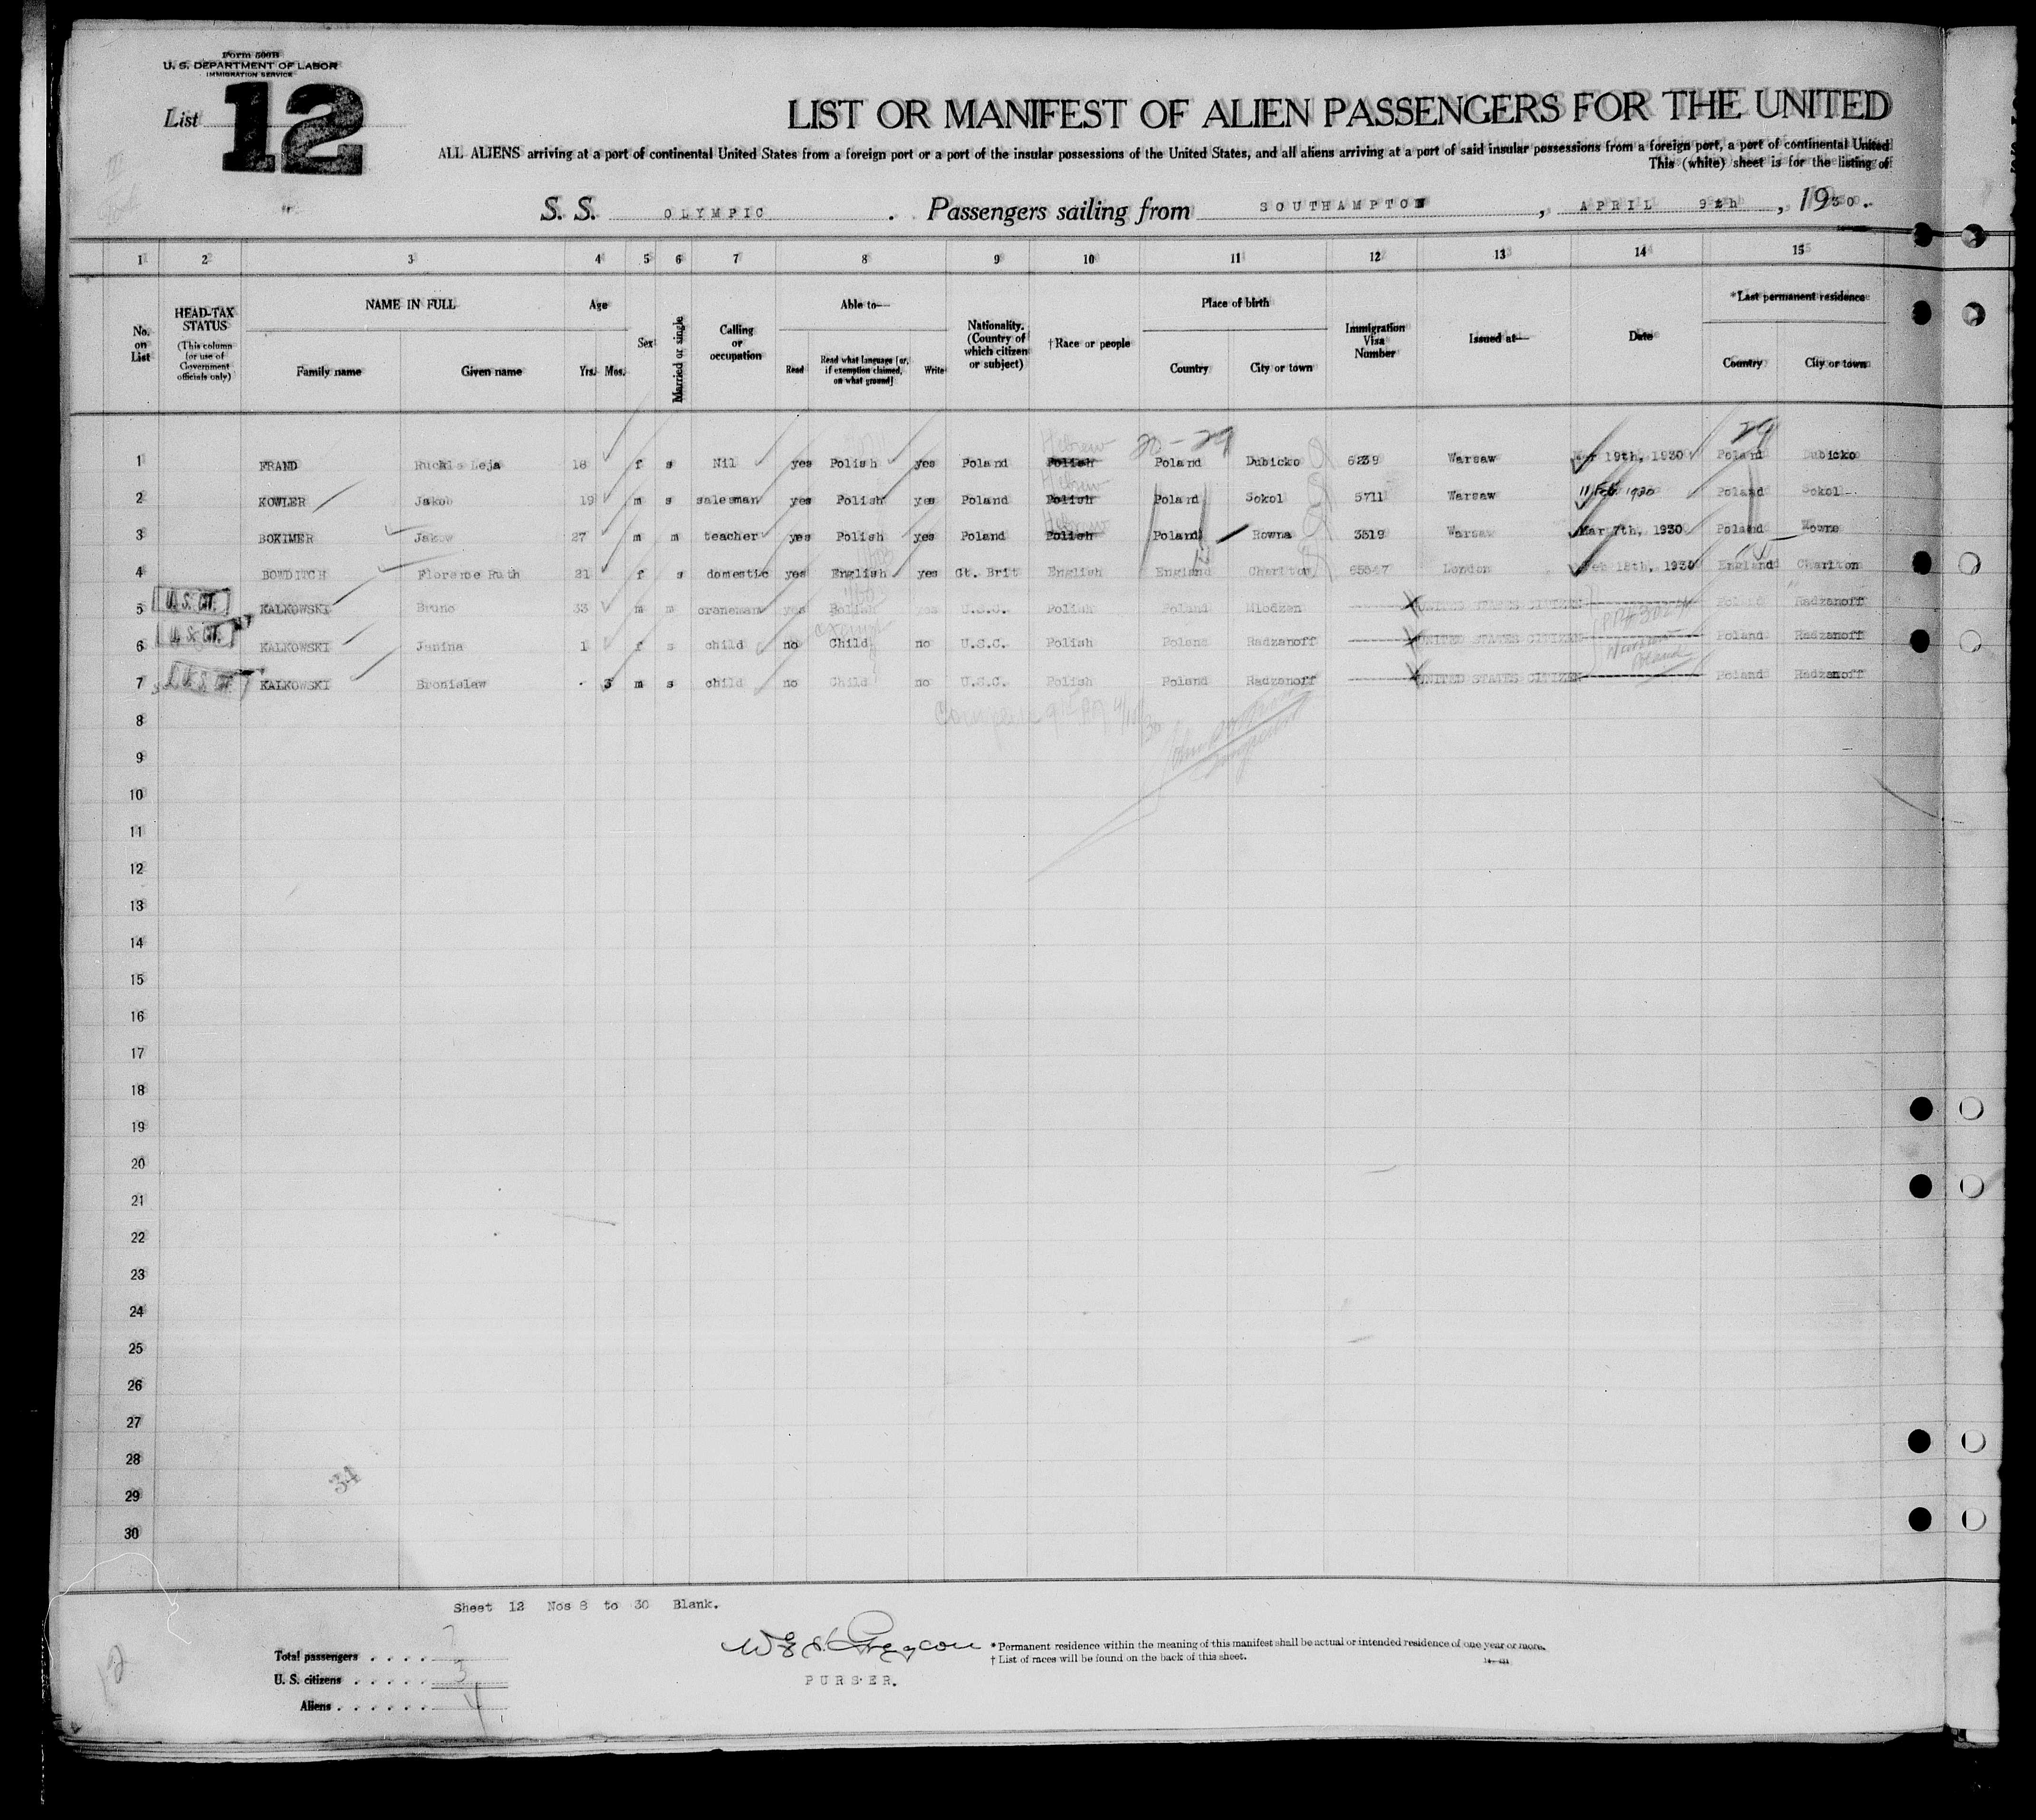 Form 500B
U. S. DEPARTMENT OF LABOR
IMMIGRATION SERVICE
List 12
LIST OR MANIFEST OF ALIEN PASSENGERS FOR THE UNITED
ALL ALIENS arriving at a port of continental United States from a foreign port or a port of the insular possessions of the United States, and all aliens arriving at a port of said insular possessions from a foreign port, a port of continental United
This (white) sheet is for the listing of
S. S. OLYMPIC . Passengers sailing from SOUTHAMPTON , APRIL 9th , 1930.
1 2 3 4 5 6 7 8 9 10 11 12 13 14 15
No. on List
HEAD-TAX STATUS (This column for use of Government officials only)
NAME IN FULL Family name Given name
Age Yrs. Mos.
Sex
Married or single
Calling or occupation
Able to— Read Read what language [or, if exemption claimed, on what ground] Write
Nationality. (Country of which citizen or subject)
†Race or people
Place of birth Country City or town
Immigration Visa Number
Issued at—
Date
*Last permanent residence Country City or town
Hebrew 20-29 29
1 FRAND Ruchla Leja 18 f s Nil yes Polish yes Poland Polish Poland Dubicko 6239 Warsaw Mar 19th, 1930 Poland Dubicko
Hebrew
2 KOWLER Jakob 19 m s salesman yes Polish yes Poland Polish Poland Sokol 5711 Warsaw 11 Feb 1930 Poland Sokol
Hebrew
3 BOKIMER Jakow 27 m m teacher yes Polish yes Poland Polish Poland Rowna 3519 Warsaw Mar 7th, 1930 Poland Rowne
4 BOWDITCH Florence Ruth 21 f s domestic yes English yes Gt. Brit English England Charlton London Feb 18th, 1930 England Charlton
U. S. CIT.
5 KALKOWSKI Bruno 33 m m craneman yes Polish yes U.S.C. Polish Poland Mlodzen UNITED STATES CITIZEN Poland Radzanoff
U. S. CIT. exempt
6 KALKOWSKI Janina 1 f s child no Child no U.S.C. Polish Poland Radzanoff UNITED STATES CITIZEN Warsaw Poland Poland Radzanoff
U. S. CIT.
7 KALKOWSKI Bronislaw - 3 m s child no Child no U.S.C. Polish Poland Radzanoff UNITED STATES CITIZEN Poland Radzanoff
8
9
10
11
12
13
14
15
16
17
18
19
20
21
22
23
24
25
26
27
28
34
29
30
Sheet 12 Nos 8 to 30 Blank.
Total passengers . . . . 7
U. S. citizens . . . . . 3
Aliens . . . . . . 4
12
PURSER.
* Permanent residence within the meaning of this manifest shall be actual or intended residence of one year or more.
† List of races will be found on the back of this sheet.